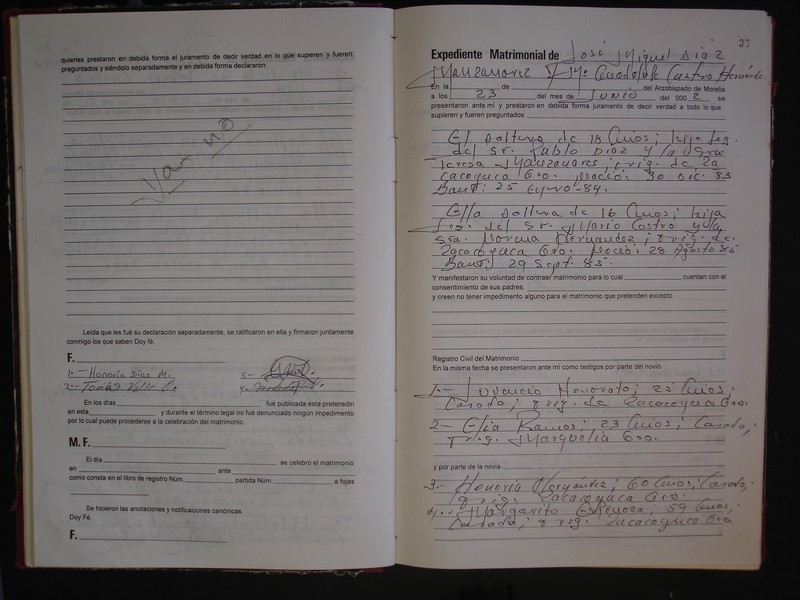 quienes prestaron en debida forma el juramento de decir verdad en lo que supieren y fueren
preguntados y siéndolo separadamente y en debida forma declararon:
Leída que les fué su declaración separadamente, se ratificaron en ella y firmaron juntamente
conmigo los que saben Doy fé.
F.
1.- Honorio Diaz M. 3-
2.- Tomás Valle C. 4.-
En los días fué publicada esta pretensión
en esta y durante el término legal no fué denunciado ningún impedimento
por lo cual puede procederse a la celebración del matrimonio.
M. F.
El día se celebró el matrimonio
en ante
como consta en el libro de registro Núm. partida Núm. a fojas
Se hicieron las anotaciones y notificaciones canónicas.
Doy Fé.
F.
Expediente Matrimonial de José Miguel Diaz
Manzanares y Mª Guadalupe Castro Hernánde
En la de del Arzobispado de Morelia
a los 23 del mes de Junio del 2002 se
presentaron ante mí y prestaron en debida forma juramento de decir verdad a todo lo que
supieren y fueren preguntados
El soltero de 18 años; hijo leg.
del Sr. Pablo Diaz y la Sra.
Teresa Manzanares; orig. de Za
cacoyuca Gro. Nació: 30 Dic. 83
Baut: 25 Enero-84.
Ella soltera de 16 años; hija
leg. del Sr. Mario Castro y la
Sra. Norma Hernandez; orig. de
Zacacoyuca Gro. Nació: 28 Agosto 85.
Baut: 29 Sept. 85.
Y manifestaron su voluntad de contraer matrimonio para lo cual cuentan con el
consentimiento de sus padres.
y creen no tener impedimento alguno para el matrimonio que pretenden excepto
Registro Civil del Matrimonio
En la misma fecha se presentaron ante mí como testigos por parte del novio
1.- Honorato; 25 años;
Casado; orig. de Zacacoyuca Gro.
2- Elia Ramos; 23 años; Casada;
orig. Marquelia Gro.
y por parte de la novia
3.- Honoria Hernandez; 60 años; Casada;
orig. Zacacoyuca Gro.
4.- Margarito Espinoza, 59 años;
Casado; orig. Zacacoyuca Gro